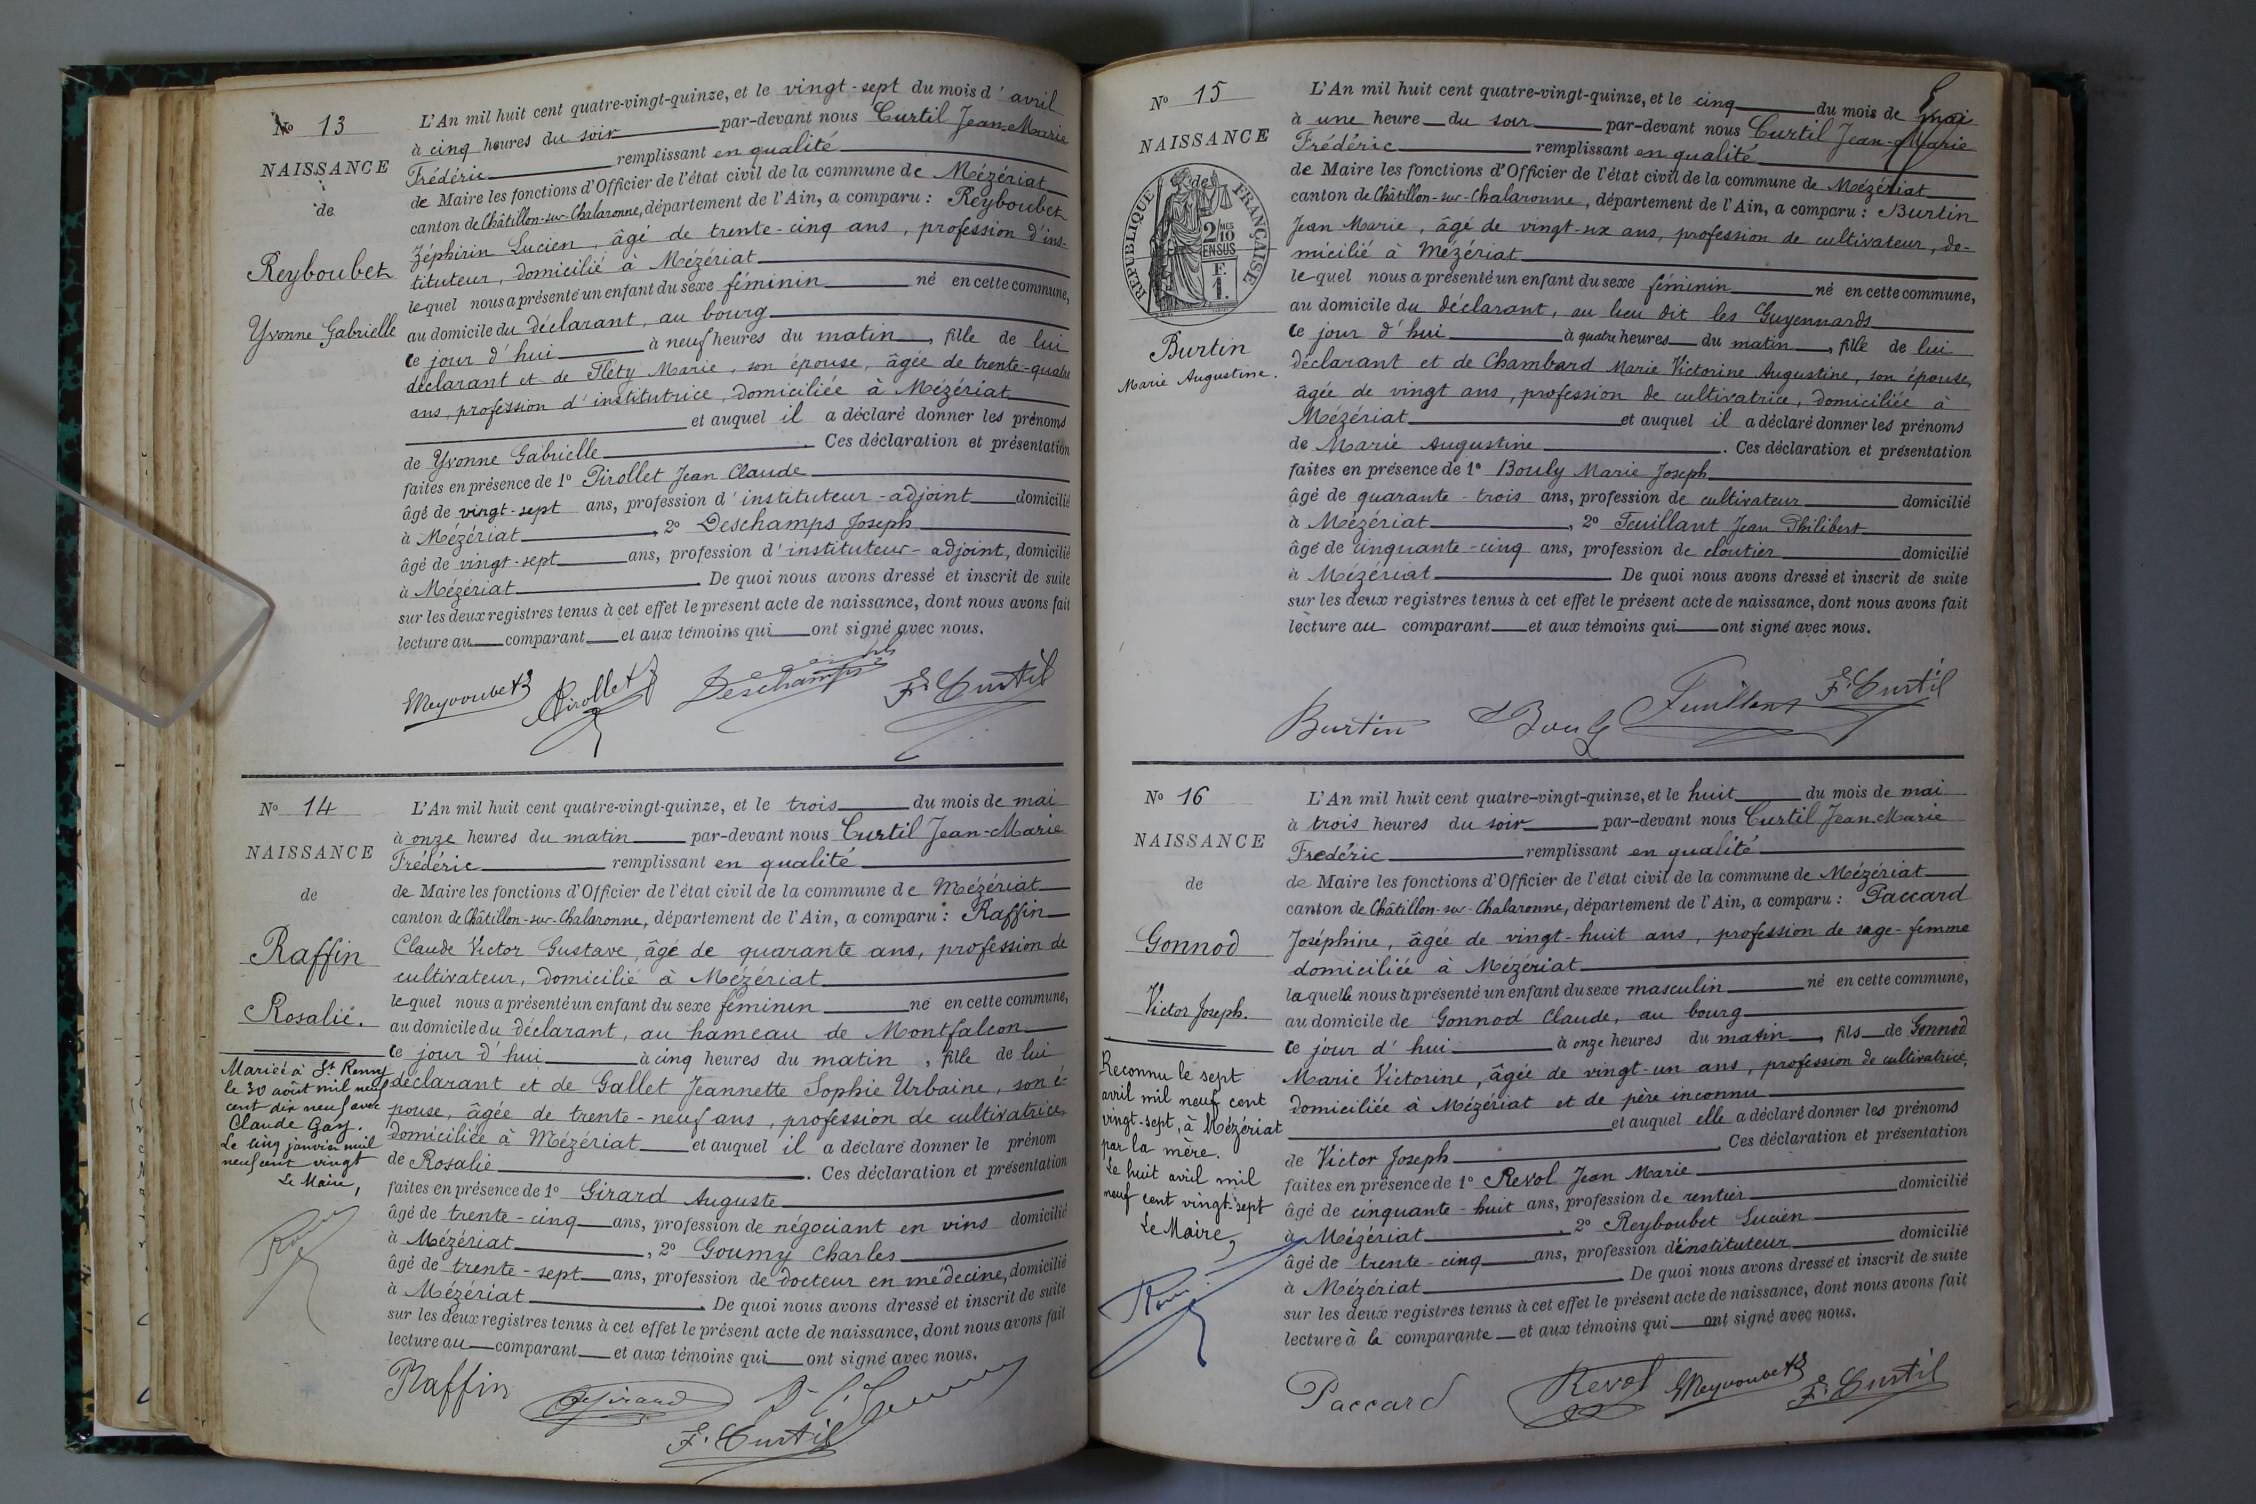 No 13
NAISSANCE
de
Reyboubet
Yvonne Gabrielle
L'An mil huit cent quatre-vingt-quinze, et le vingt-sept du mois d'avril
à cinq heures du soir par-devant nous Curtil Jean-Marie
Frédéric remplissant en qualité
de Maire les fonctions d'Officier de l'état civil de la commune de Mézériat
canton de Châtillon-sur-Chalaronne, département de l'Ain, a comparu : Reyboubet
Zéphirin Lucien, âgé de trente-cinq ans, profession d'ins-
tituteur, domicilié à Mézériat
lequel nous a présenté un enfant du sexe féminin né en cette commune,
au domicile du déclarant, au bourg
ce jour d'hui à neuf heures du matin, fille de lui
déclarant et de Fléty Marie, son épouse, âgée de trente-quatre
ans, profession d'institutrice, domiciliée à Mézériat
et auquel il a déclaré donner les prénoms
de Yvonne Gabrielle Ces déclaration et présentation
faites en présence de 1° Pirollet Jean Claude
âgé de vingt-sept ans, profession d'instituteur-adjoint domicilié
à Mézériat, 2° Deschamps Joseph
âgé de vingt-sept ans, profession d'instituteur-adjoint, domicilié
à Mézériat. De quoi nous avons dressé et inscrit de suite
sur les deux registres tenus à cet effet le présent acte de naissance, dont nous avons fait
lecture au comparant et aux témoins qui ont signé avec nous.
Reyboubet Pirollet Deschamps F. Curtil
No 14
NAISSANCE
de
Raffin
Rosalie.
Mariée à St Remy
le 30 août mil neuf
cent dix neuf avec
Claude Gay.
Le cinq janvier mil
neuf cent vingt
Le Maire,
L'An mil huit cent quatre-vingt-quinze, et le trois du mois de mai
à onze heures du matin par-devant nous Curtil Jean-Marie
Frédéric remplissant en qualité
de Maire les fonctions d'Officier de l'état civil de la commune de Mézériat
canton de Châtillon-sur-Chalaronne, département de l'Ain, a comparu : Raffin
Claude Victor Gustave, âgé de quarante ans, profession de
cultivateur, domicilié à Mézériat
lequel nous a présenté un enfant du sexe féminin né en cette commune,
au domicile du déclarant, au hameau de Montfalcon
ce jour d'hui à cinq heures du matin, fille de lui
déclarant et de Gallet Jeannette Sophie Urbaine, son é-
pouse, âgée de trente-neuf ans, profession de cultivatrice,
domiciliée à Mézériat et auquel il a déclaré donner le prénom
de Rosalie. Ces déclaration et présentation
faites en présence de 1° Girard Auguste
âgé de trente-cinq ans, profession de négociant en vins domicilié
à Mézériat, 2° Goumy Charles
âgé de trente-sept ans, profession de docteur en médecine, domicilié
à Mézériat. De quoi nous avons dressé et inscrit de suite
sur les deux registres tenus à cet effet le présent acte de naissance, dont nous avons fait
lecture au comparant et aux témoins qui ont signé avec nous.
Raffin Girard
F. Curtil
No 15
NAISSANCE
de
REPUBLIQUE FRANÇAISE
2/10 EN SUS
F. 1.
Burtin
Marie Augustine.
L'An mil huit cent quatre-vingt-quinze, et le cinq du mois de mai
à une heure du soir par-devant nous Curtil Jean-Marie
Frédéric remplissant en qualité
de Maire les fonctions d'Officier de l'état civil de la commune de Mézériat
canton de Châtillon-sur-Chalaronne, département de l'Ain, a comparu : Burtin
Jean Marie, âgé de vingt-six ans, profession de cultivateur, do-
micilié à Mézériat
lequel nous a présenté un enfant du sexe féminin né en cette commune,
au domicile du déclarant, au lieu dit les Guyennards
ce jour d'hui à quatre heures du matin, fille de lui
déclarant et de Chambard Marie Victorine Augustine, son épouse,
âgée de vingt ans, profession de cultivatrice, domiciliée à
Mézériat et auquel il a déclaré donner les prénoms
de Marie Augustine. Ces déclaration et présentation
faites en présence de 1° Bouly Marie Joseph
âgé de quarante-trois ans, profession de cultivateur domicilié
à Mézériat, 2° Feuillant Jean Philibert
âgé de cinquante-cinq ans, profession de cloutier domicilié
à Mézériat De quoi nous avons dressé et inscrit de suite
sur les deux registres tenus à cet effet le présent acte de naissance, dont nous avons fait
lecture au comparant et aux témoins qui ont signé avec nous.
Burtin Bouly Feuillant F. Curtil
No 16
NAISSANCE
de
Gonnod
Victor Joseph.
Reconnu le sept
avril mil neuf cent
vingt-sept, à Mézériat
par la mère.
Le huit avril mil
neuf cent vingt-sept
Le Maire,
L'An mil huit cent quatre-vingt-quinze, et le huit du mois de mai
à trois heures du soir par-devant nous Curtil Jean-Marie
Frédéric remplissant en qualité
de Maire les fonctions d'Officier de l'état civil de la commune de Mézériat
canton de Châtillon-sur-Chalaronne, département de l'Ain, a comparu : Paccard
Joséphine, âgée de vingt-huit ans, profession de sage-femme
domiciliée à Mézériat
laquelle nous a présenté un enfant du sexe masculin né en cette commune,
au domicile de Gonnod Claude, au bourg
ce jour d'hui à onze heures du matin, fils de Gonnod
Marie Victorine, âgée de vingt-un ans, profession de cultivatrice,
domiciliée à Mézériat et de père inconnu
et auquel elle a déclaré donner les prénoms
de Victor Joseph. Ces déclaration et présentation
faites en présence de 1° Revol Jean Marie
âgé de cinquante-huit ans, profession de rentier domicilié
à Mézériat, 2° Reyboubet Lucien
âgé de trente-cinq ans, profession d'instituteur domicilié
à Mézériat De quoi nous avons dressé et inscrit de suite
sur les deux registres tenus à cet effet le présent acte de naissance, dont nous avons fait
lecture à la comparante et aux témoins qui ont signé avec nous.
Paccard Revol Reyboubet F. Curtil